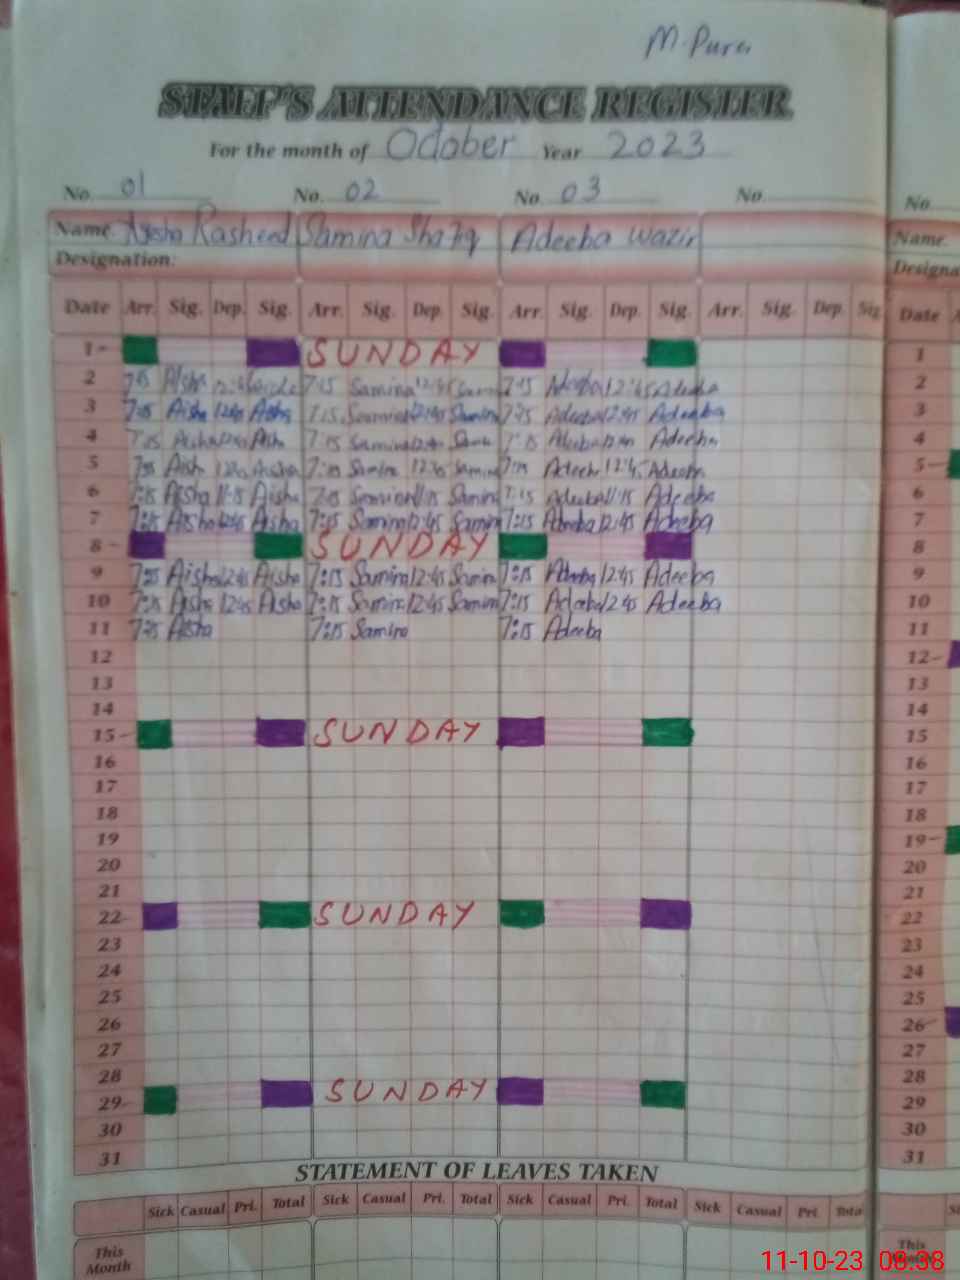 M. Pura
STAFF'S ATTENDANCE REGISTER
For the month of October Year 2023
No. 01 No. 02 No. 03 No. No.
Name. Rasheed Samina Shafiq Adeeba Wazir Name.
Designation: Designa
Date Arr. Sig. Dep. Sig. Arr. Sig. Dep. Sig. Arr. Sig. Dep. Sig. Arr. Sig. Dep. Sig. Date
1 SUNDAY 1
2 Aisha 7:15 Samina 12:45 7:15 Adeeba 12:45 Adeeba 2
3 7:15 Aisha 12:45 Aisha 7:15 Samina 12:45 Samina 7:15 Adeeba 12:45 Adeeba 3
4 7:15 Aisha Aish 7:15 Samina 7:15 Adeeba Adeeba 4
5 Aish Aisha Samina 12:45 Samina 7:15 Adeeb 12:45 Adeeba 5
6 7:15 Aisha 11:15 Aisha 7:15 Samina 11:15 Samina 7:15 Adeeba 11:15 Adeeba 6
7 7:15 Aisha 12:45 Aisha 7:15 Samina 12:45 Samina 7:15 Adeeba 12:45 Adeeba 7
8 SUNDAY 8
9 7:15 Aisha 12:45 Aisha 7:15 Samina 12:45 Samina 7:15 Adeeba 12:45 Adeeba 9
10 7:15 Aisha 12:45 Aisha 7:15 Samina 12:45 Samina 7:15 Adeeba 12:45 Adeeba 10
11 7:15 Aisha 7:15 Samina 7:15 Adeeba 11
12 12
13 13
14 14
15 SUNDAY 15
16 16
17 17
18 18
19 19
20 20
21 21
22 SUNDAY 22
23 23
24 24
25 25
26 26
27 27
28 28
29 SUNDAY 29
30 30
31 31
STATEMENT OF LEAVES TAKEN
Sick Casual Pri. Total Sick Casual Pri. Total Sick Casual Pri. Total Sick Casual Pri. Total
This Month This Month
11-10-23 08:38